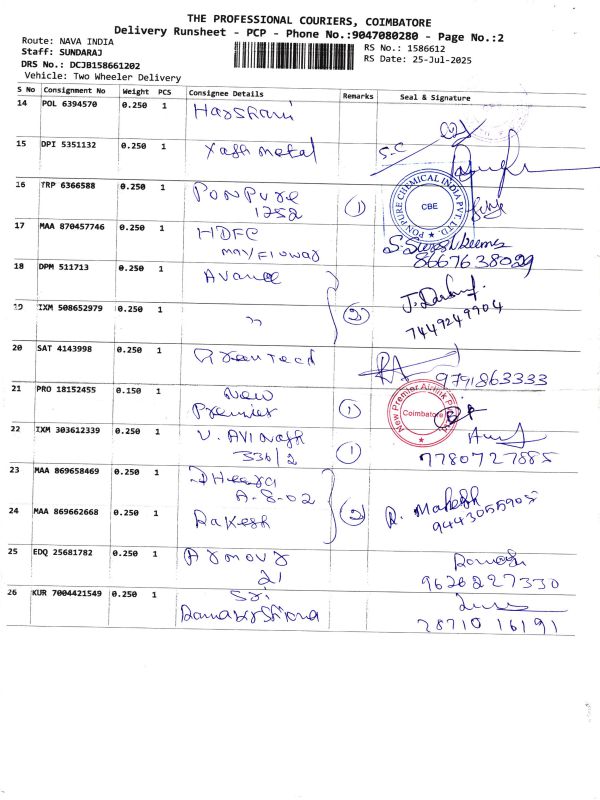 THE PROFESSIONAL COURIERS, COIMBATORE
Delivery Runsheet - PCP - Phone No.:9047080280 - Page No.:2
Route: NAVA INDIA
RS No.: 1586612
Staff: SUNDARAJ
RS Date: 25-Jul-2025
DRS No.: DCJB158661202
Vehicle: Two Wheeler Delivery
S No Consignment No Weight PCS Consignee Details Remarks Seal & Signature
14 POL 6394570 0.250 1 Harshani
15 DPI 5351132 0.250 1 Yash metal S.C
16 TRP 6366588 0.250 1 Ponpure
1252 1
PONPURE CHEMICAL INDIA PVT. LTD.
CBE
17 MAA 870457746 0.250 1 HDFC
8667638029
18 DPM 511713 0.250 1 Avance
19 IXM 508652979 0.250 1 " 2
7449249904
20 SAT 4143998 0.250 1 Green Tech 9791863333
21 PRO 18152455 0.150 1 New
Premier 1
New Premier Airlink
Coimbatore
22 IXM 303612339 0.250 1 V. AVINASH
336/2 1 7780727885
23 MAA 869658469 0.250 1 Dheera
A-8-02
24 MAA 869662668 0.250 1 Rakesh 2 R. Mahesh
9443055905
25 EDQ 25681782 0.250 1 Armour
21
9626227330
26 KUR 7004421549 0.250 1 Sri
28710 16191